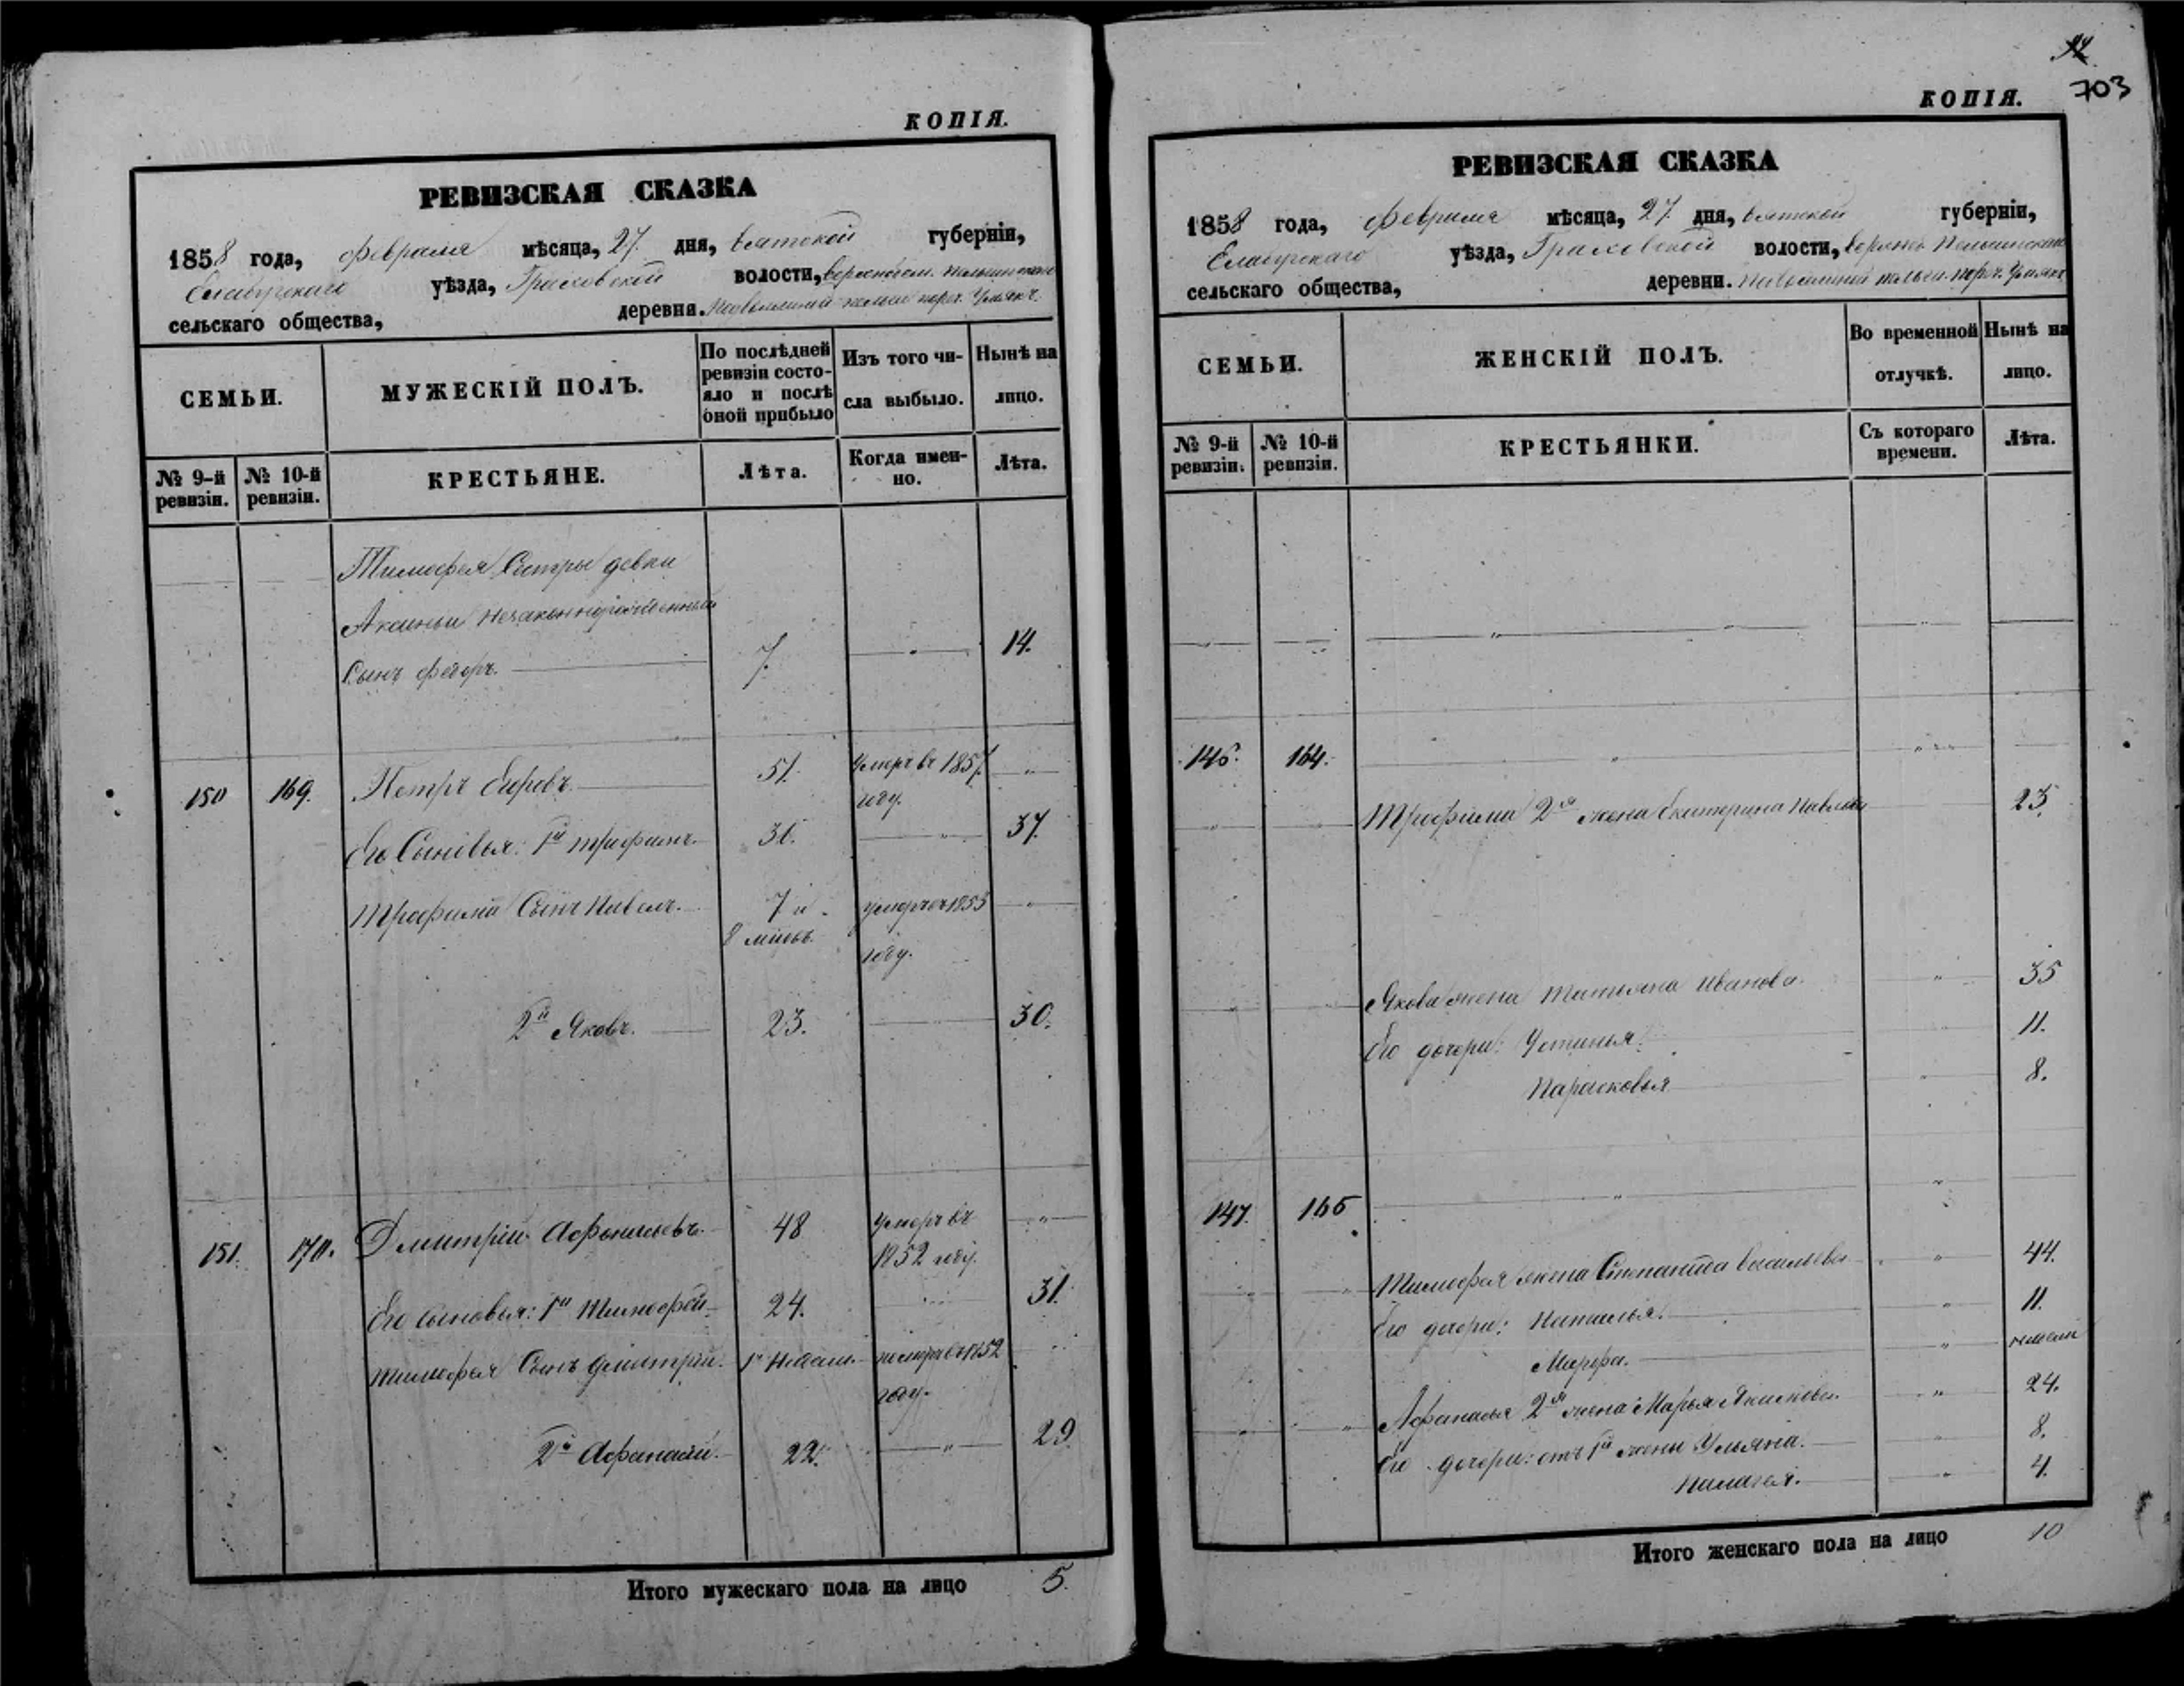 КОПІЯ.
РЕВИЗСКАЯ СКАЗКА
1858 года, февраля мѣсяца, 27 дня, Вятской губерніи,
Елабужскаго уѣзда, Граховской волости,
сельскаго общества, деревни.
СЕМЬИ.
МУЖЕСКІЙ ПОЛЪ.
По послѣдней ревизіи состояло и послѣ оной прибыло
Изъ того числа выбыло.
Нынѣ на лицо.
№ 9-й ревизіи.
№ 10-й ревизіи.
КРЕСТЬЯНЕ.
Лѣта.
Когда именно.
Лѣта.
Тимофея Сестры девки
Аксиньи незаконнорожденный
Сынъ Федоръ. 7. 14.
150 169. Петръ Егоровъ 51. Умеръ въ 1857
году.
Его Сыновья: 1й Трофимъ. 30. 37.
Трофима Сынъ Павелъ. 7 и умеръ въ 1853
8 месяц. году.
2й Яковъ. 23. 30.
151. 170. Дмитрій Афонасьевъ. 48 Умеръ въ
1852 году.
Его сыновья: 1й Тимофей 24. 31.
Тимофея Сынъ Дмитрій. 1 недели померъ въ 1852
году.
2й Афанасій. 22. 29
Итого мужескаго пола на лицо 5.
703
КОПІЯ.
РЕВИЗСКАЯ СКАЗКА
1858 года, февраля мѣсяца, 27 дня, Вятской губерніи,
Елабужскаго уѣзда, Граховской волости,
сельскаго общества, деревни.
СЕМЬИ.
ЖЕНСКІЙ ПОЛЪ.
Во временной отлучкѣ.
Нынѣ на лицо.
№ 9-й ревизіи.
№ 10-й ревизіи.
КРЕСТЬЯНКИ.
Съ котораго времени.
Лѣта.
146. 164.
Трофима 2я жена Екатерина Павлова 23.
Якова жена Татьяна Иванова. 35
Его дочери: Устинья. 11.
Парасковья 8.
147. 165
Тимофея жена Степанида Васильева 44.
Его дочери: Наталья. 11.
Марфа. недели
Афанасья 2я жена Марья Якимова 24.
Его дочери: отъ 1й жены Ульяна. 8.
Палагея. 4.
Итого женскаго пола на лицо 10